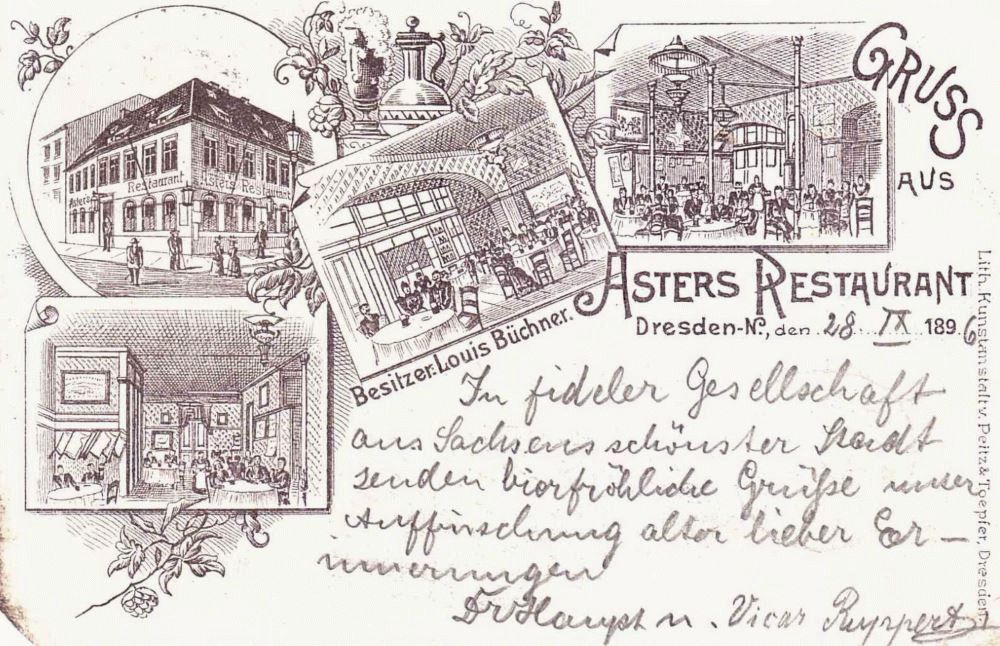 GRUSS
AUS
ASTERS RESTAURANT
Dresden-N., den 28. IX 1896
Besitzer: Louis Büchner.
Restaurant
Asters Restaurant
In fideler Gesellschaft
aus Sachsens schönster Stadt
senden bierfröhliche Grüße unser
Auffrischung alter lieber Er-
innerungen
Dr Haupt u. Vicar Ruppert
Lith. Kunstanstalt v. Peitz & Toepfer, Dresden